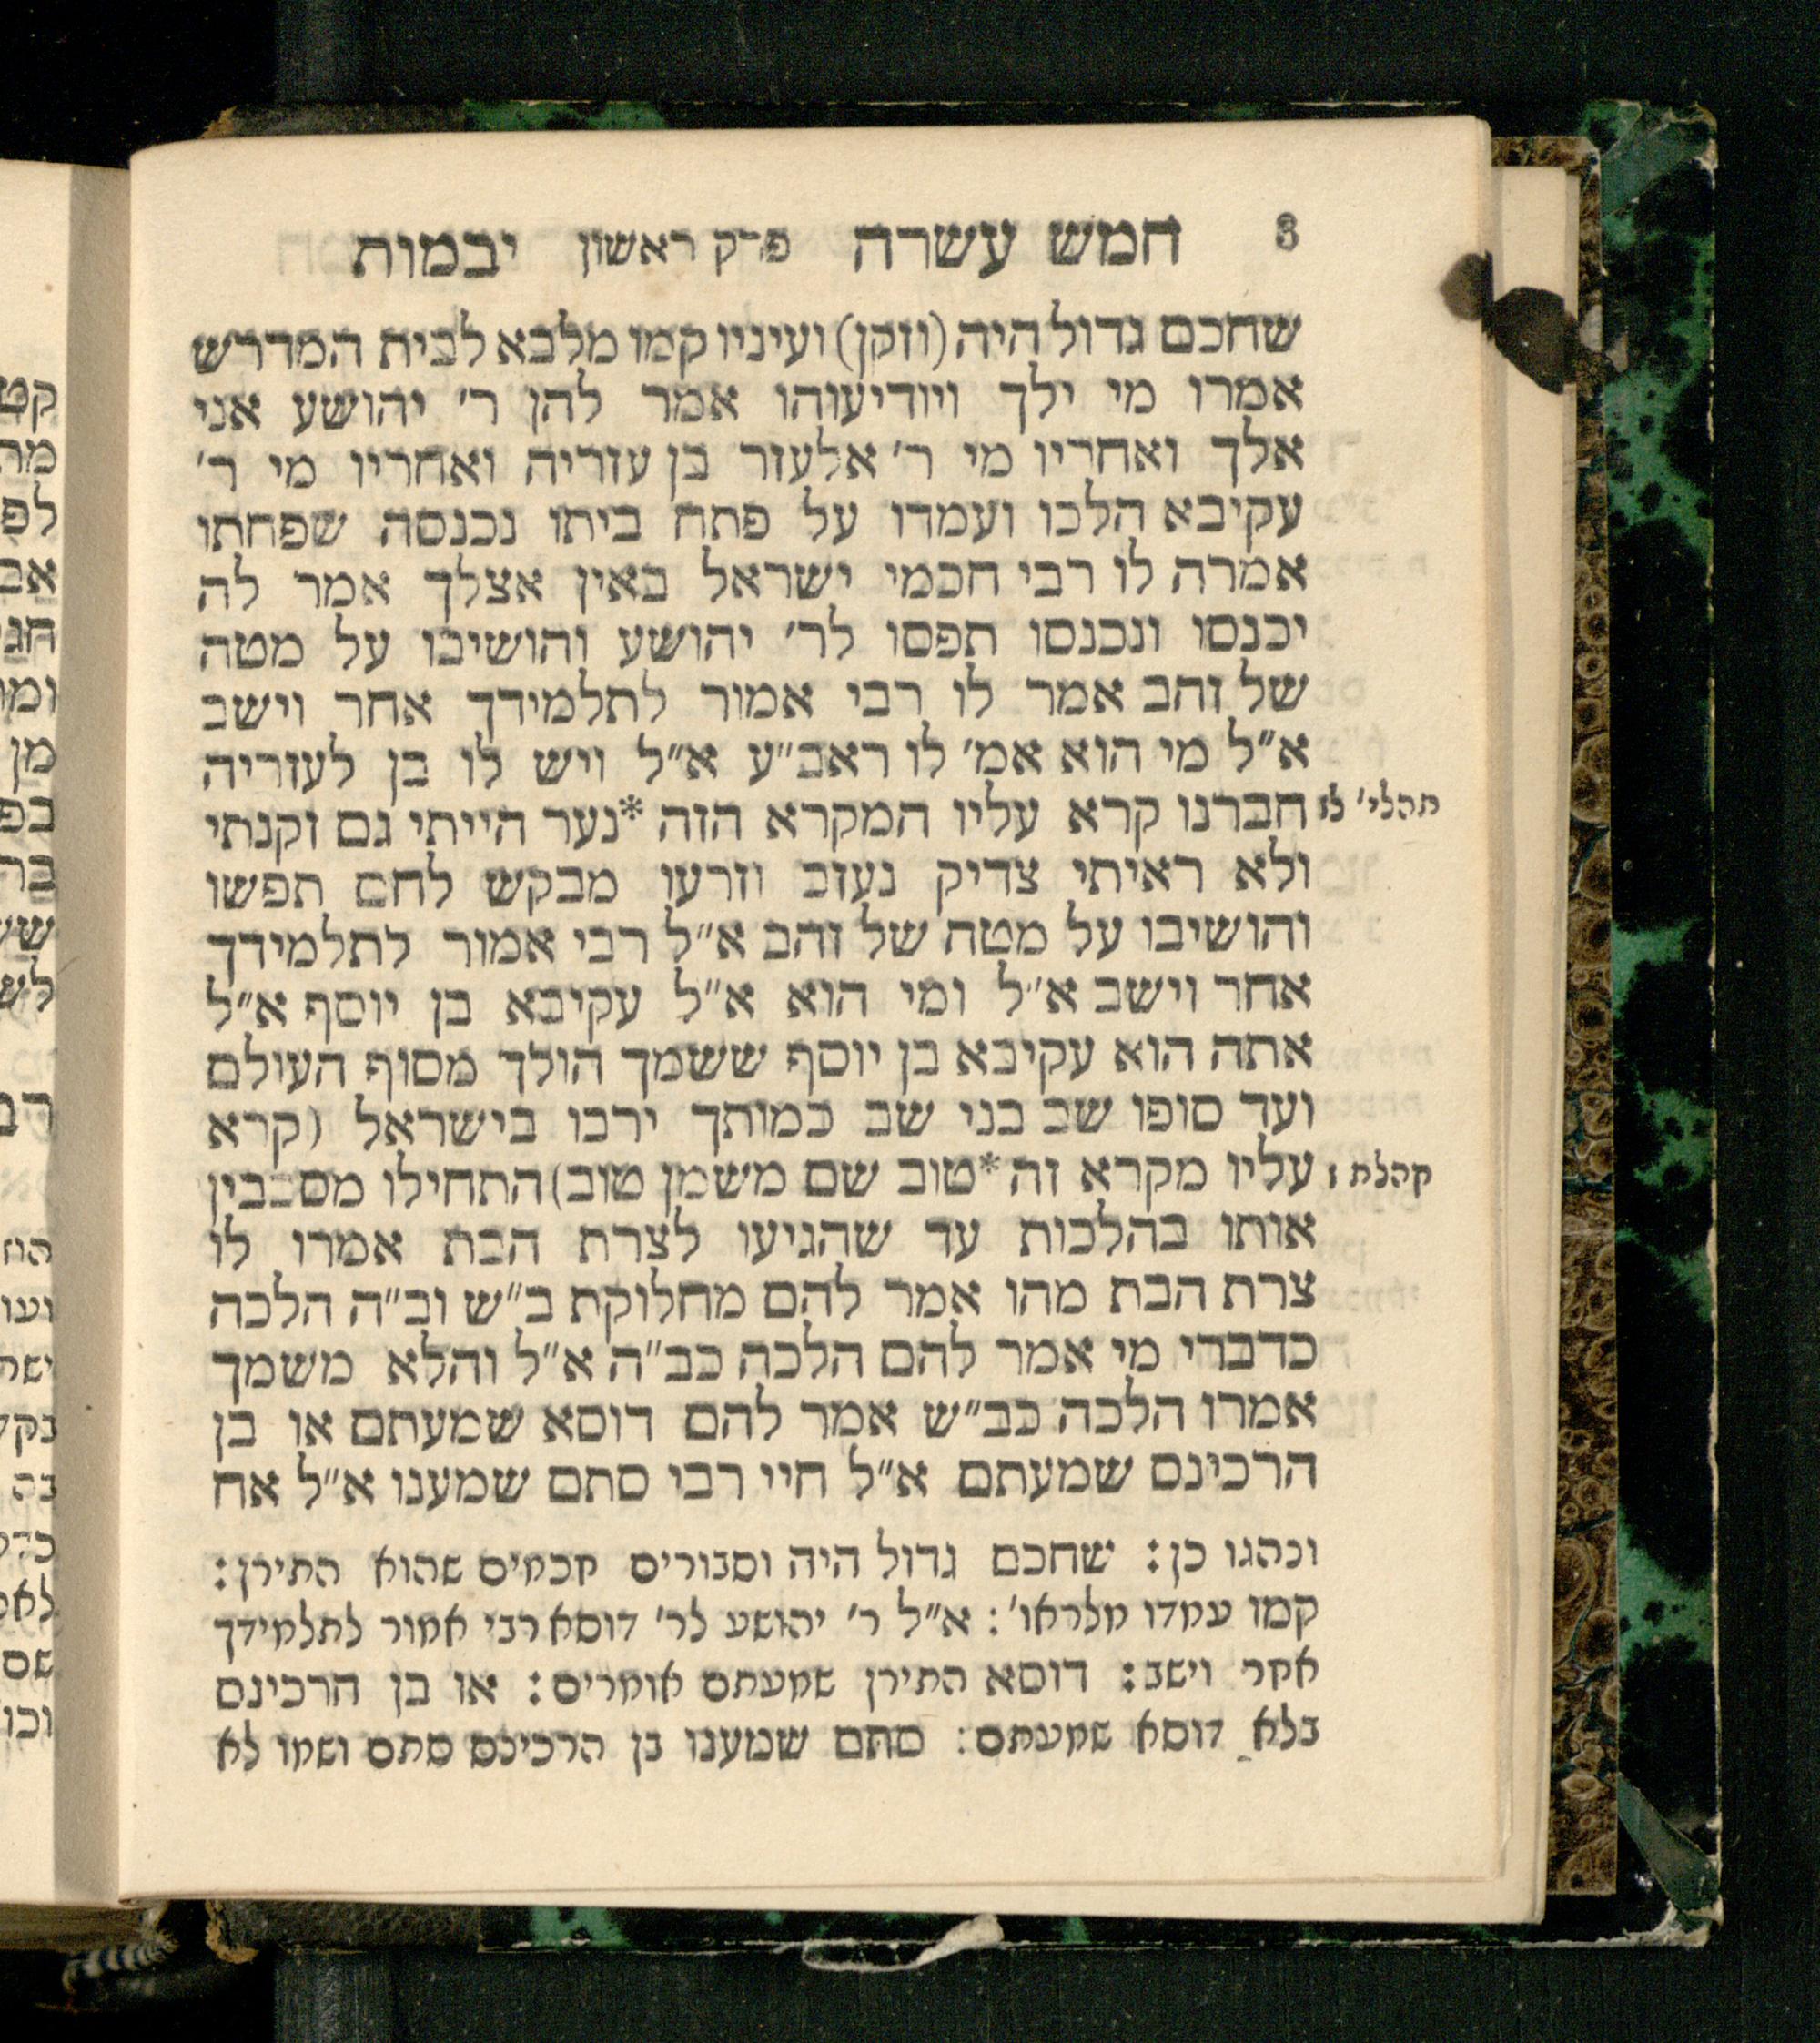 8 חמש עשרה פרק ראשון יבמות
שחכם גדול היה (וזקן) ועיניו קמו מלבא לבית המדרש
אמרו מי ילך ויודיעוהו אמר להן ר׳ יהושע אני
אלך ואחריו מי ר׳ אלעזר בן עזריה ואחריו מי ר׳
עקיבא הלכו ועמדו על פתח ביתו נכנסה שפחתו
אמרה לו רבי חכמי ישראל באין אצלך אמר לה
יכנסו ונכנסו תפסו לר׳ יהושע והושיבו על מטה
של זהב אמר לו רבי אמור לתלמידך אחר וישב
א״ל מי הוא אמ׳ לו ראב״ע א״ל ויש לו בן לעזריה
תהלי׳ לז
חברנו קרא עליו המקרא הזה *נער הייתי גם זקנתי
ולא ראיתי צדיק נעזב וזרעו מבקש לחם תפשו
והושיבו על מטה של זהב א״ל רבי אמור לתלמידך
אחר וישב א״ל ומי הוא א״ל עקיבא בן יוסף א״ל
אתה הוא עקיבא בן יוסף ששמך הולך מסוף העולם
ועד סופו שב בני שב כמותך ירבו בישראל (קרא
קהלת ז
עליו מקרא זה *טוב שם משמן טוב) התחילו מסבבין
אותו בהלכות עד שהגיעו לצרת הבת אמרו לו
צרת הבת מהו אמר להם מחלוקת ב״ש וב״ה הלכה
כדברי מי אמר להם הלכה כב״ה א״ל והלא משמך
אמרו הלכה כב״ש אמר להם דוסא שמעתם או בן
הרכינס שמעתם א״ל חיי רבי סתם שמענו א״ל אח
ונהגו כן: שחכם גדול היה וסבורים חכמים שהוא התירן:
קמו עמדו מלראו׳: א״ל ר׳ יהושע לר׳ דוסא רבי אמור לתלמידך
אחר וישב: דוסא התירן שמעתם אומרים: או בן הרכינס
בלא דוסא שמעתם: סתם שמענו בן הרכינס סתם ושמו לא